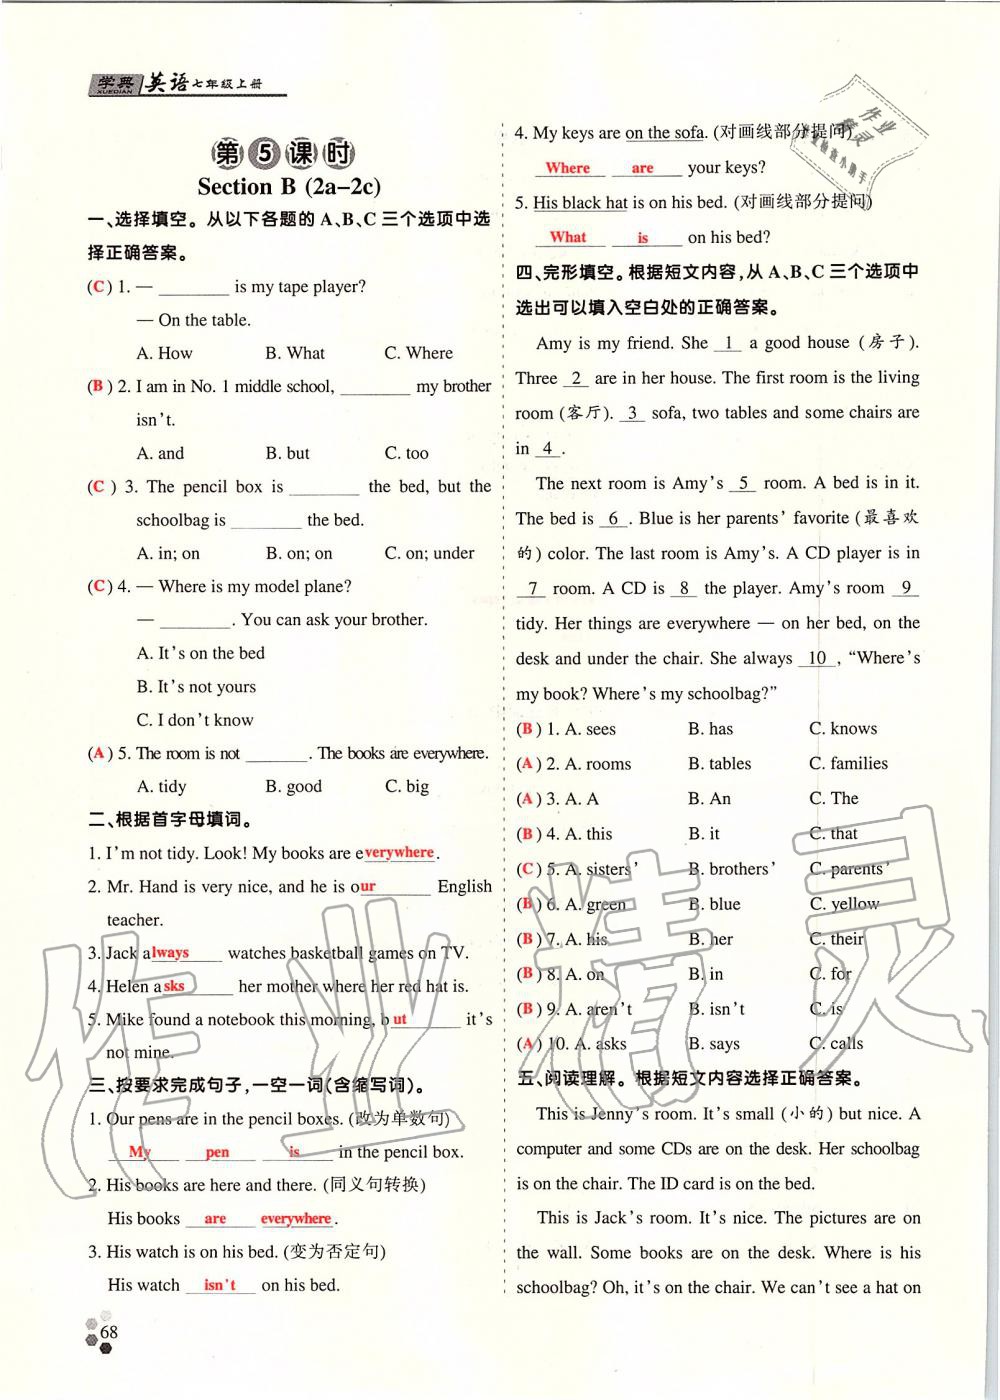 学典
XUEDIAN
英语七年级上册
第5课时
Section B (2a-2c)
一、选择填空。从以下各题的 A、B、C 三个选项中选
择正确答案。
(C) 1. — ________ is my tape player?
— On the table.
A. How B. What C. Where
(B) 2. I am in No. 1 middle school, ________ my brother
isn't.
A. and B. but C. too
(C) 3. The pencil box is ________ the bed, but the
schoolbag is ________ the bed.
A. in; on B. on; on C. on; under
(C) 4. — Where is my model plane?
— ________. You can ask your brother.
A. It's on the bed
B. It's not yours
C. I don't know
(A) 5. The room is not ________. The books are everywhere.
A. tidy B. good C. big
二、根据首字母填词。
1. I'm not tidy. Look! My books are everywhere.
2. Mr. Hand is very nice, and he is our English
teacher.
3. Jack always watches basketball games on TV.
4. Helen asks her mother where her red hat is.
5. Mike found a notebook this morning, but it's
not mine.
三、按要求完成句子,一空一词(含缩写词)。
1. Our pens are in the pencil boxes. (改为单数句)
My pen is in the pencil box.
2. His books are here and there. (同义句转换)
His books are everywhere.
3. His watch is on his bed. (变为否定句)
His watch isn't on his bed.
68
4. My keys are on the sofa. (对画线部分提问)
Where are your keys?
5. His black hat is on his bed. (对画线部分提问)
What is on his bed?
四、完形填空。根据短文内容,从 A、B、C 三个选项中
选出可以填入空白处的正确答案。
Amy is my friend. She 1 a good house (房子).
Three 2 are in her house. The first room is the living
room (客厅). 3 sofa, two tables and some chairs are
in 4 .
The next room is Amy's 5 room. A bed is in it.
The bed is 6 . Blue is her parents' favorite (最喜欢
的) color. The last room is Amy's. A CD player is in
7 room. A CD is 8 the player. Amy's room 9
tidy. Her things are everywhere — on her bed, on the
desk and under the chair. She always 10 , "Where's
my book? Where's my schoolbag?"
(B) 1. A. sees B. has C. knows
(A) 2. A. rooms B. tables C. families
(A) 3. A. A B. An C. The
(B) 4. A. this B. it C. that
(C) 5. A. sisters' B. brothers' C. parents'
(B) 6. A. green B. blue C. yellow
(B) 7. A. his B. her C. their
(B) 8. A. on B. in C. for
(B) 9. A. aren't B. isn't C. is
(A) 10. A. asks B. says C. calls
五、阅读理解。根据短文内容选择正确答案。
This is Jenny's room. It's small (小的) but nice. A
computer and some CDs are on the desk. Her schoolbag
is on the chair. The ID card is on the bed.
This is Jack's room. It's nice. The pictures are on
the wall. Some books are on the desk. Where is his
schoolbag? Oh, it's on the chair. We can't see a hat on
作业精灵
作业
精灵